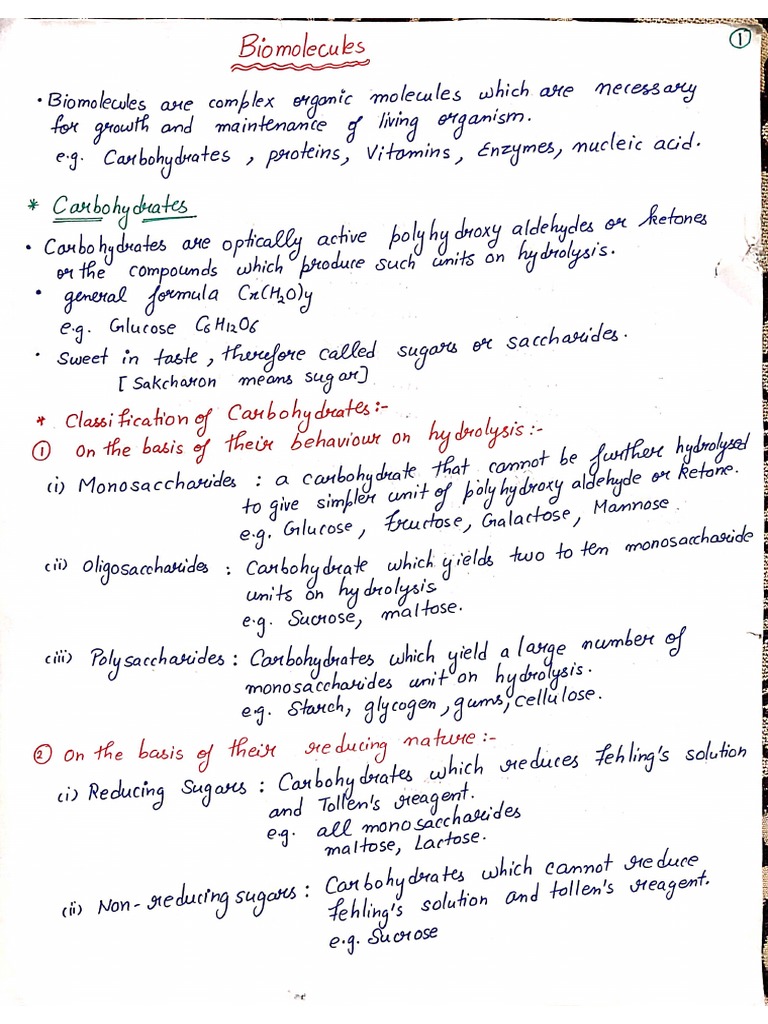 Biomolecules
1
• Biomolecules are complex organic molecules which are necessary
for growth and maintenance of living organism.
e.g. Carbohydrates, proteins, Vitamins, Enzymes, nucleic acid.
* Carbohydrates
• Carbohydrates are optically active polyhydroxy aldehydes or ketones
or the compounds which produce such units on hydrolysis.
• general formula Cx(H2O)y
e.g. Glucose C6H12O6
• Sweet in taste, therefore called sugars or saccharides.
[Sakcharon means sugar]
* Classification of Carbohydrates:-
① On the basis of their behaviour on hydrolysis:-
(i) Monosaccharides : a carbohydrate that cannot be further hydrolysed
to give simpler unit of polyhydroxy aldehyde or ketone.
e.g. Glucose, Fructose, Galactose, Mannose.
(ii) Oligosaccharides : Carbohydrate which yields two to ten monosaccharide
units on hydrolysis
e.g. Sucrose, maltose.
(iii) Polysaccharides : Carbohydrates which yield a large number of
monosaccharides unit on hydrolysis.
e.g. Starch, glycogen, gums, cellulose.
② On the basis of their reducing nature:-
(i) Reducing Sugars : Carbohydrates which reduces Fehling's solution
and Tollen's reagent.
e.g. all monosaccharides
maltose, Lactose.
(ii) Non-reducing sugars : Carbohydrates which cannot reduce
Fehling's solution and tollen's reagent.
e.g. Sucrose